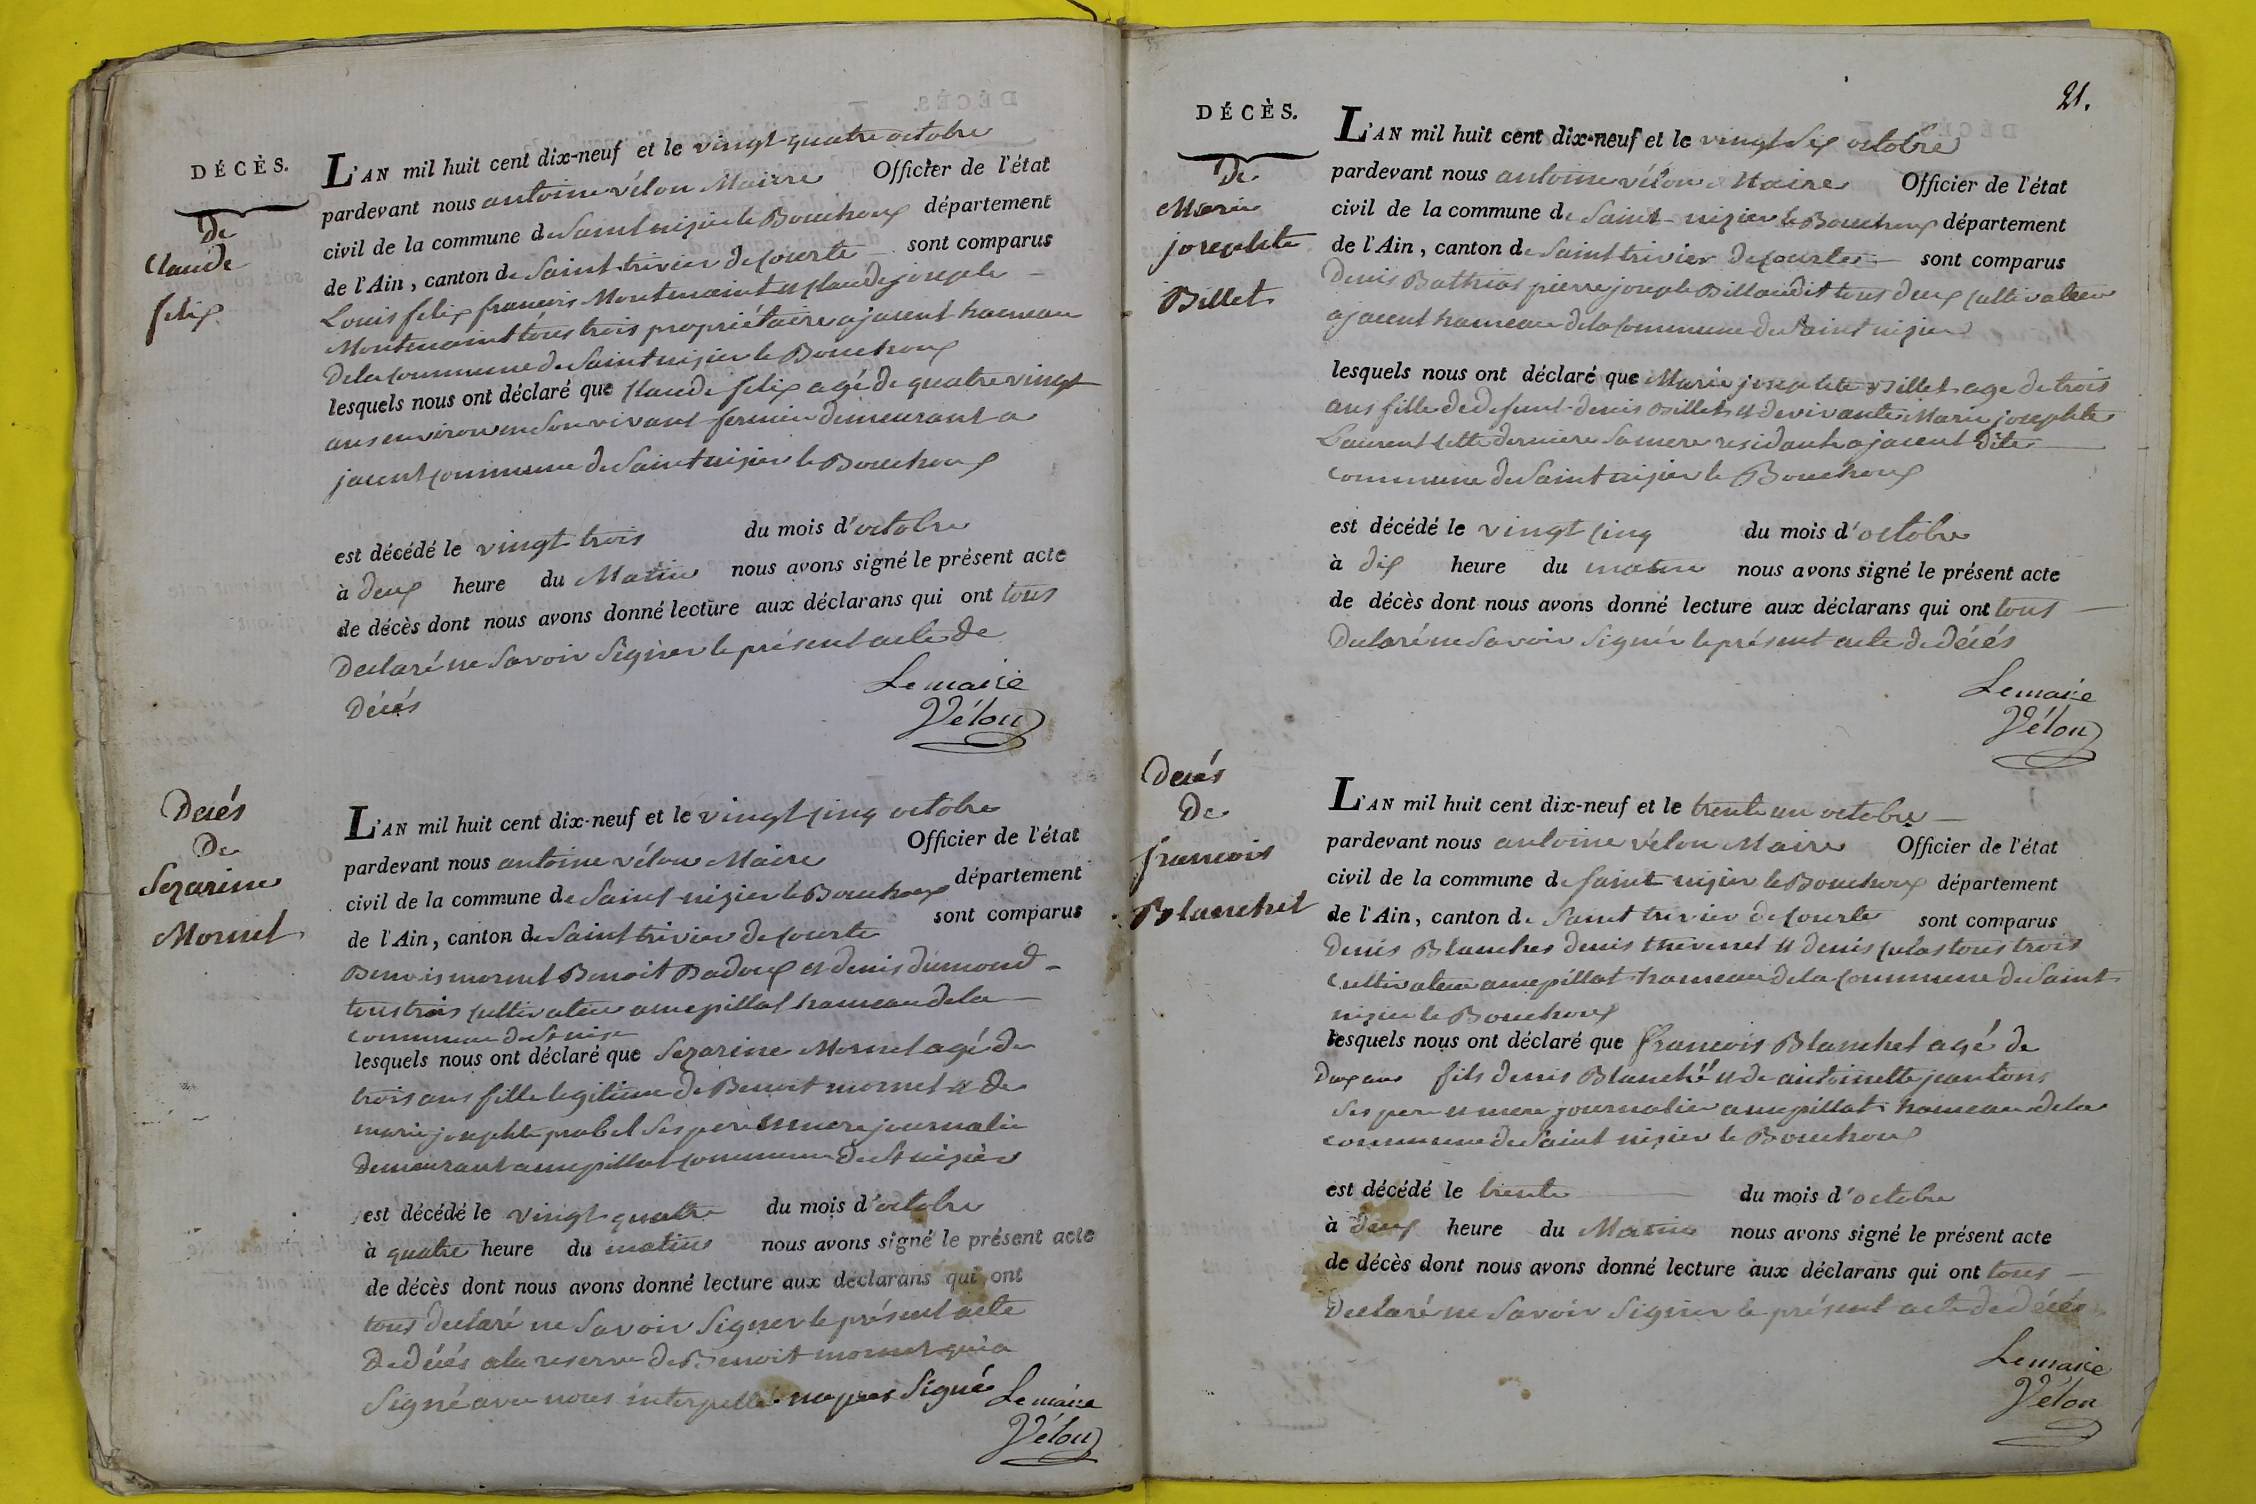 DÉCÈS.
De
Claude
felix
L'AN mil huit cent dix-neuf et le vingt-quatre octobre
pardevant nous antoine vélon Maire Officier de l'état
civil de la commune de Saint nizier le Bouchoux département
de l'Ain, canton de Saint-trivier de Courte sont comparus
Louis felix francois Montmaint et Claude joseph
Montmaint tous trois propriétaire a jacent hameau
De la Commune de Saint nizier le Bouchoux
lesquels nous ont déclaré que Claude felix agé de quatre vingt
ans environ en Son vivant fermier demeurant a
jacent Commune de Saint nizier le Bouchoux
est décédé le vingt trois du mois d'octobre
à deux heure du Matin nous avons signé le présent acte
de décès dont nous avons donné lecture aux déclarans qui ont tous
Declaré ne Savoir Signer le présent acte de
Décés
Le maire
Vélon
Decés
De
Sezarine
Mornet
L'AN mil huit cent dix-neuf et le vingt Cinq octobre
pardevant nous antoine vélon Maire Officier de l'état
civil de la commune de Saint nizier le Bouchoux département
de l'Ain, canton de Saint trivier de Courte sont comparus
Benois mornet Benoit Badoux et denis dumond
tous trois Cultivateur a mepillat hameau de la
Commune de St nizr
lesquels nous ont déclaré que Sezarine Mornet agé de
trois ans fille legitime de Benoit mornet et de
marie josephte probel Ses pere et mere journalié
Demeurant a mepillat Commune de St nizier
est décédé le vingt quatre du mois d'octobre
à quatre heure du matin nous avons signé le présent acte
de décès dont nous avons donné lecture aux déclarans qui ont
tous declaré ne Savoir Signer le présent acte
De décés a la reserve de Benoit mornet qui a
Signé avec nous interpellé na pas Signé Le maire
Vélon
21.
DÉCÈS.
De
Marie
josephte
Billet
L'AN mil huit cent dix-neuf et le vingt Six octobre
pardevant nous antoine vélon Maire Officier de l'état
civil de la commune de Saint nizier le Bouchoux département
de l'Ain, canton de Saint trivier de Courte sont comparus
Denis Bathias pierre joseph Billaudit tous deux Cultivateur
a jacent hameau de la Commune de Saint nizier
lesquels nous ont déclaré que Marie josephte Billet age de trois
ans fille de defunt denis Billet et de vivante Marie josephte
Laurent Cette derniere Sa mere residante a jacent dite
Commune de Saint nizier le Bouchoux
est décédé le vingt Cinq du mois d'octobre
à dix heure du matin nous avons signé le présent acte
de décès dont nous avons donné lecture aux déclarans qui ont tous
Declaré ne Savoir Signér le présent acte de décés
Le maire
Vélon
Decés
De
francois
Blanchet
L'AN mil huit cent dix-neuf et le trente un octobre
pardevant nous antoine vélon Maire Officier de l'état
civil de la commune de Saint nizier le Bouchoux département
de l'Ain, canton de Saint trivier de Courte sont comparus
Denis Blanches denis thevenet et denis Culas tous trois
Cultivateur a mepillat hameau de la Commune de Saint
nizier le Bouchoux
lesquels nous ont déclaré que francois Blanchet agé de
Dux ans fils denis Blanché et de antoinette
Ses pere et mere journalier a mepillat hameau de la
Commune de Saint nizier le Bouchoux
est décédé le trente du mois d'octobre
à deux heure du Matin nous avons signé le présent acte
de décès dont nous avons donné lecture aux déclarans qui ont tous
Declaré ne Savoir Signer le présent acte de décés
Le maire
Vélon